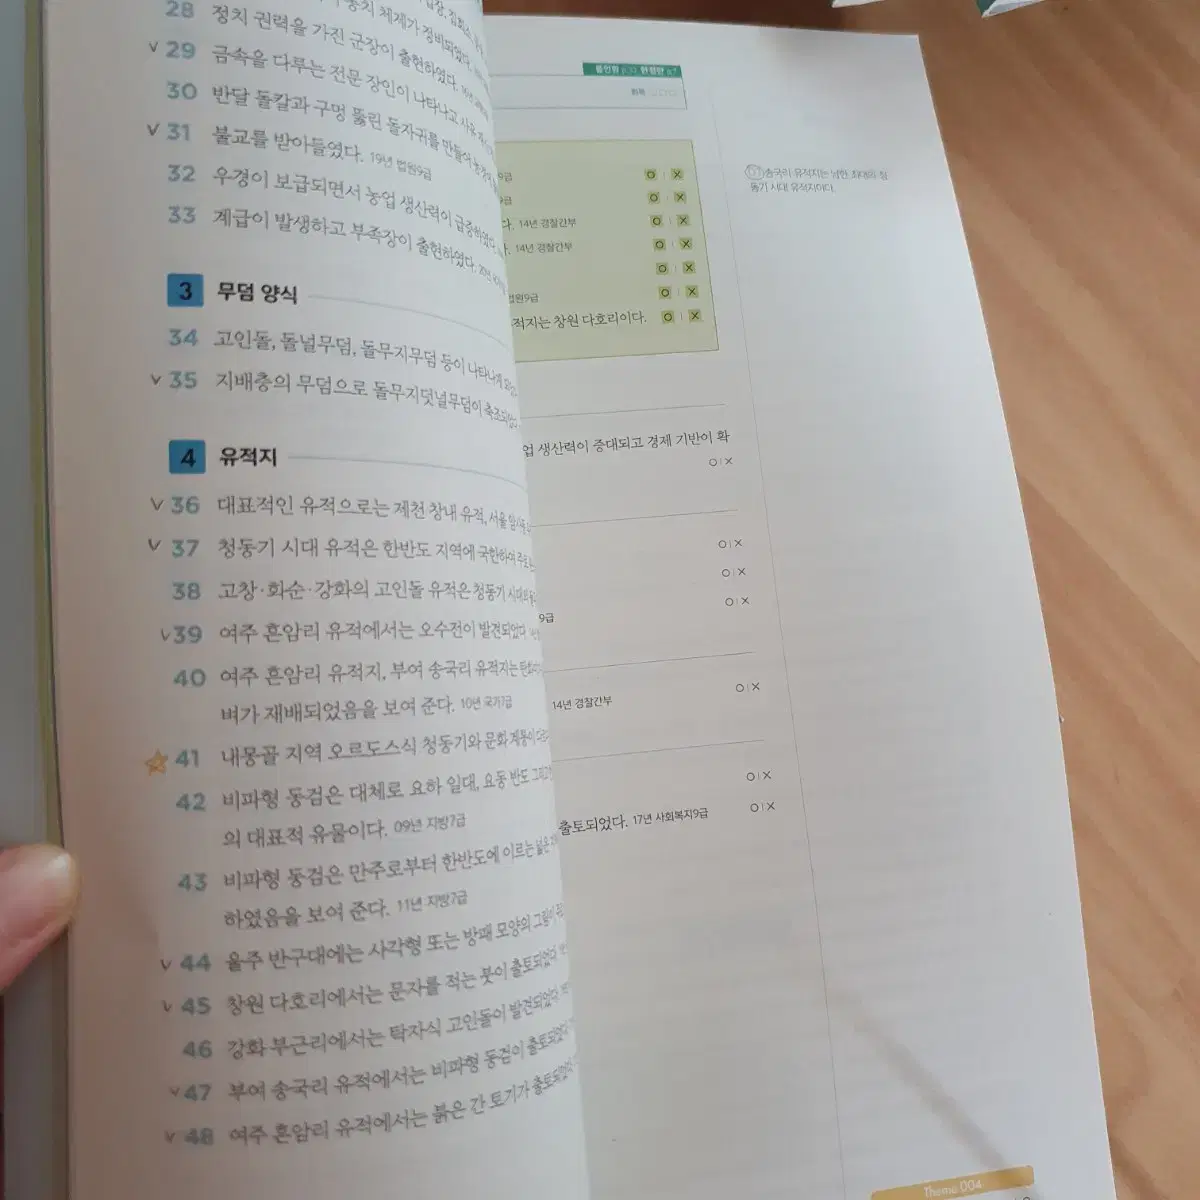 28 정치 권력을 가진 군장이 출현하였다.
29 금속을 다루는 전문 장인이 나타나고 사유
30 반달 돌칼과 구멍 뚫린 돌자귀를 만들어
31 불교를 받아들였다. 19년 법원9급
32 우경이 보급되면서 농업 생산력이 급증하였다.
33 계급이 발생하고 부족장이 출현하였다.
3 무덤 양식
34 고인돌, 돌널무덤, 돌무지무덤 등이 나타나게
35 지배층의 무덤으로 돌무지덧널무덤이 축조되었
4 유적지
36 대표적인 유적으로는 제천 창내 유적, 서울 암사동
37 청동기 시대 유적은 한반도 지역에 국한하여 주로
38 고창·화순·강화의 고인돌 유적은 청동기 시대의
39 여주 흔암리 유적에서는 오수전이 발견되었다.
40 여주 흔암리 유적지, 부여 송국리 유적지는 탄화
벼가 재배되었음을 보여 준다. 10년 국가7급
41 내몽골 지역 오르도스식 청동기와 문화 계통이
42 비파형 동검은 대체로 요하 일대, 요동 반도
의 대표적 유물이다. 09년 지방7급
43 비파형 동검은 만주로부터 한반도에 이르는 넓은
하였음을 보여 준다. 11년 지방7급
44 울주 반구대에는 사각형 또는 방패 모양의 그림이
45 창원 다호리에서는 문자를 적는 붓이 출토되었다.
46 강화 부근리에서는 탁자식 고인돌이 발견되었다.
47 부여 송국리 유적에서는 비파형 동검이 출토되었다.
48 여주 흔암리 유적에서는 붉은 간 토기가 출토되었다.
9급 O X
9급 O X
다. 14년 경찰간부 O X
14년 경찰간부 O X
O X
법원9급 O X
적지는 창원 다호리이다. O X
업 생산력이 증대되고 경제 기반이 확
O X
O X
O X
O X
9급
O X
14년 경찰간부
O X
출토되었다. 17년 사회복지9급 O X
송국리 유적지는 남한 최대의 청
동기 시대 유적지이다.
Theme 004